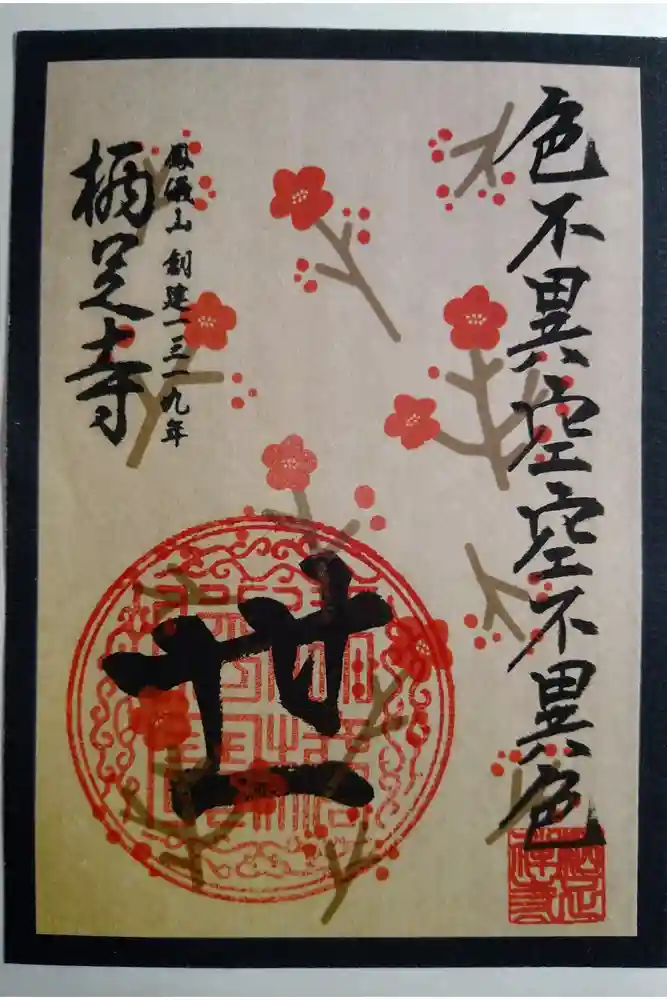 色不異空空不異色
世
鳳儀山 創建一三一九年
柄足寺